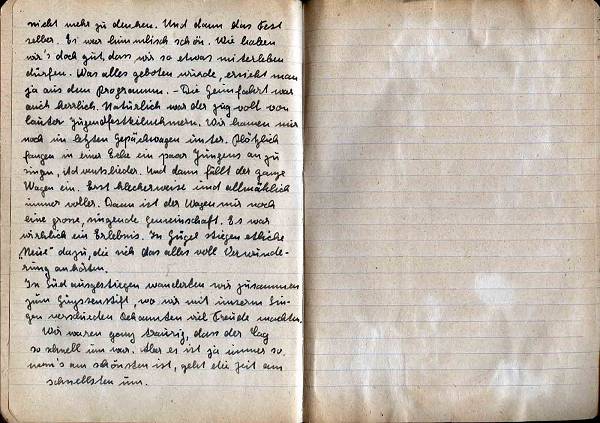 nicht mehr zu denken. Und dann das Fest
selber. Es war himmlisch schön. Wie haben
wir's doch gut, dass wir so etwas miterleben
dürfen. Was alles geboten wurde, ersieht man
ja aus dem Programm. – Die Heimfahrt war
auch herrlich. Natürlich war der Zug voll von
lauter Jugendfestteilnehmern. Wir kamen nur
noch im letzten Gepäckwagen unter. Plötzlich
fangen in einer Ecke ein paar Jungens an zu
singen, Adventslieder. Und dann fällt der ganze
Wagen ein. Erst kleckerweise und allmählich
immer voller. Dann ist der Wagen nur noch
eine grosse, singende Gemeinschaft. Es war
wirklich ein Erlebnis. In stiegen etliche
„Neue" dazu, die sich das alles voll Verwunde-
rung anhörten.
In Süd ausgestiegen wanderten wir zusammen
zum, wo wir mit unserm Sin-
gen verschieden Bekannten viel Freude machten.
Wir waren ganz traurig, dass der Tag
so schnell um war. Aber es ist ja immer so,
wenn's am schönsten ist, geht die Zeit am
schnellsten um.